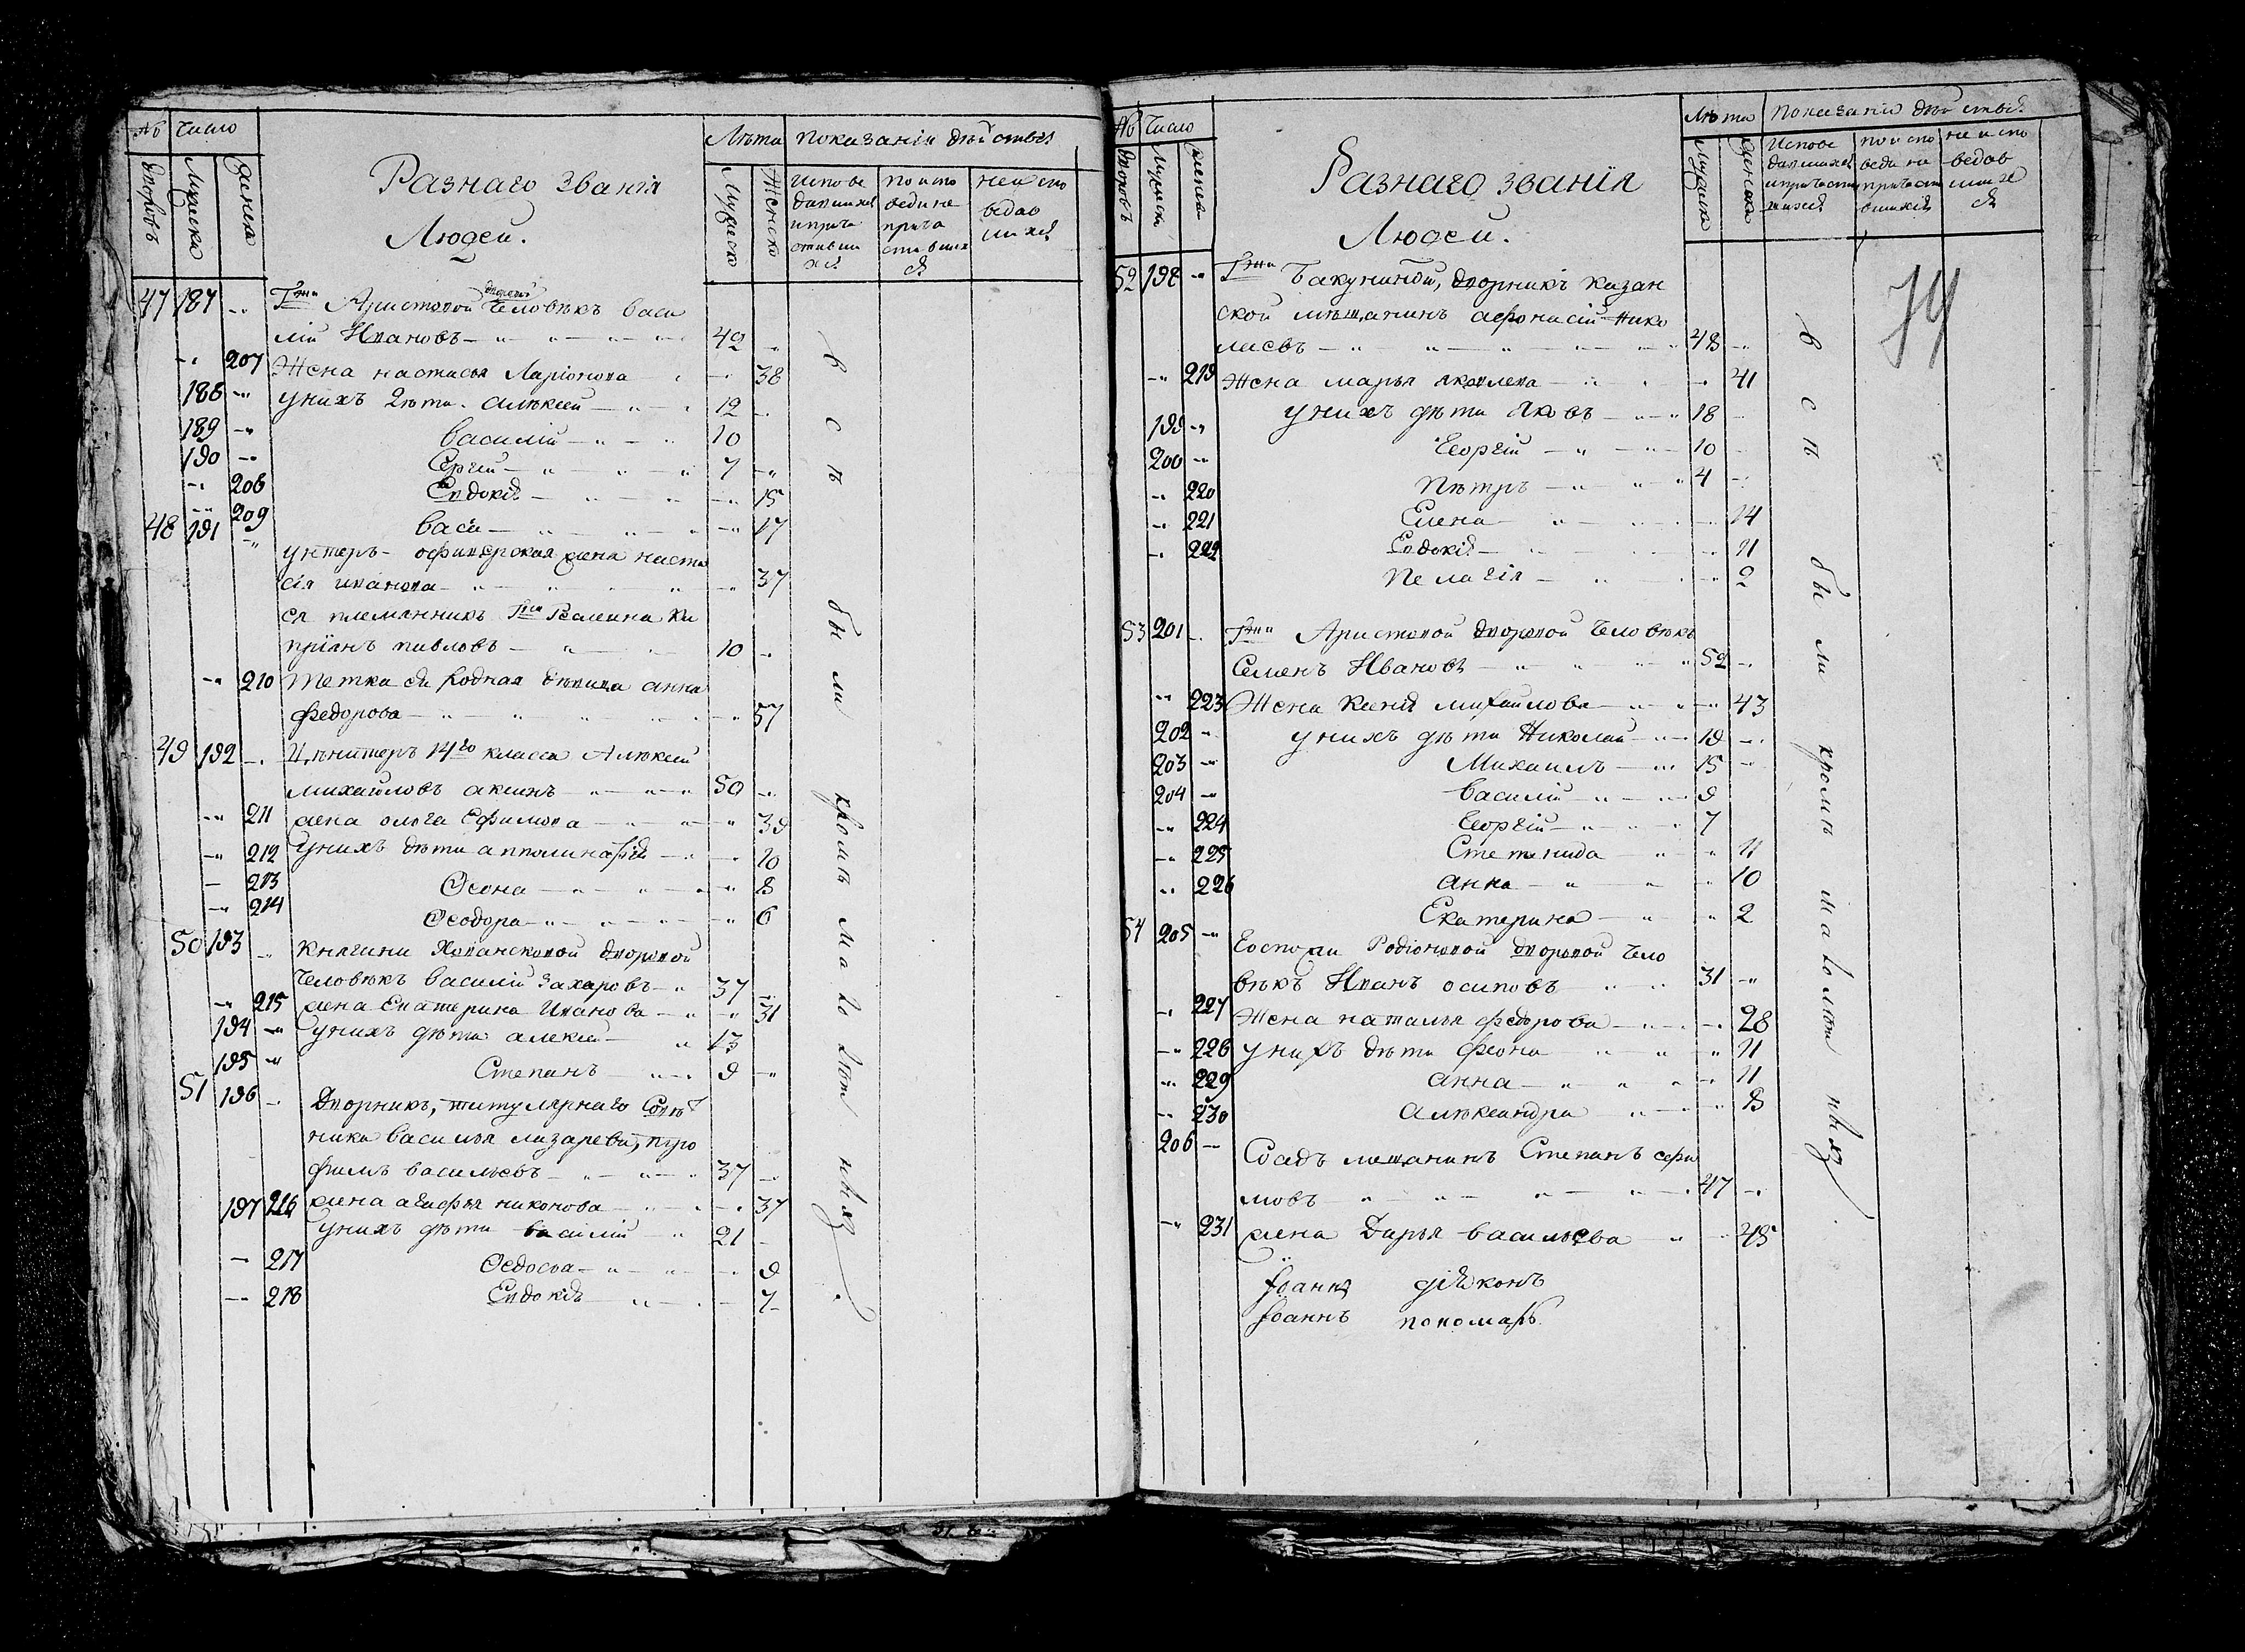 № Число
дворовъ
Мужска
женска
Разнаго званія
Людей.
Лѣта
Мужска
Женска
показаніи дѣйствія
испове
давшихся
и прича
стивши
хся
по испо
веди не
прича
стивших
ся
не испо
ведав
шихся
47 187 -"
Гжи Аристовой дворовой человѣкъ Васи
лій Ивановъ - " - " 42 -"
-" 207 Жена настасья Ларіонова - " 38
188 -" у нихъ дѣти. алѣксей - " 12 -"
189 -" василій - " 10
190 -" Сергій - " 7 -"
-" 208 Евдокія - " 15
-" 209 васа - " 17
48 191 -"
унтеръ-офицерская жена наста
сія иванова - " 37
ея племянникъ Ки
пріянъ павловъ - " 10 -"
-" 210 тетка ея родная дѣвица анна
федорова - " 57
49 192 -" 14го класса Алѣксей
михайловъ акинъ - " 50 -"
-" 211 жена олга Ефимова - " 39
-" 212 у нихъ дѣти апполинарія - " 10
- 213 Ѳеона - " 8
-" 214 Ѳеодора - " 6
50 193 -" княгини Ховансковой дворовой
человѣкъ василій Захаровъ - " 37 -"
-" 215 жена Екатерина Иванова - " 31
194 -" у нихъ дѣти алексей - " 13
195 -" Степанъ - " 9 -"
51 196 -" Дворникъ, титулярнаго Совѣт
ника василья лазарева, тро
фимъ васильевъ - " 37 -"
197 216 жена агафья никонова - " 37
у нихъ дѣти василій - " 21 -
- 217 Ѳедосья - " 9
-" 218 Евдокія - " 7
всѣ были кромѣ малолѣтнихъ.
№ Число
дворовъ
Мужска
женска
Разнаго званія
Людей.
Лѣта
Мужска
Женска
показаніи дѣйствія
Испове
давшихся
и причасти
вшихся
по испо
веди не
причасти
вшихся
не испо
ведав
ших
ся
52 198 -" Гжи Бакуниной, дворникъ казан
ской мѣщанинъ афонасій Нико
лаевъ - " 48 -"
-" 219 Жена марья яковлева - " 41
у нихъ дѣти Яковъ - " 18 -
199 -" Георгій - " 10 -
200 -" Пѣтръ - " 4 -"
-" 220 Елена - " 14
-" 221 Евдокія - " 11
-" 222 Пелагія - " 2
53 201 -" Гжи Аристовой дворовой человѣкъ
Семенъ Ивановъ - " 52 -"
-" 223 Жена ксенія михайлова - " 43
202 -" у нихъ дѣти Николай - " 19 -"
203 -" Михаилъ - " 15 -"
204 -" василій - " 9
-" 224 Георгій - " 7
-" 225 Степанида - " 11
-" 226 анна - " 10
Екатерина - " 2
54 205 -" Госпожи Родіоновой дворовой чело
вѣкъ Иванъ осиповъ - " 31 -"
-" 227 Жена наталья федорова - " 28
-" 228 у нихъ дѣти феона - " 11
-" 229 анна - " 11
-" 230 алѣксандра - " 8
206 - мещанинъ Степанъ ефи
мовъ - " 47 -"
-" 231 жена Дарья васильева - " 45
Іоаннъ діяконъ
Іоаннъ пономарь
всѣ были кромѣ малолѣтнихъ
74